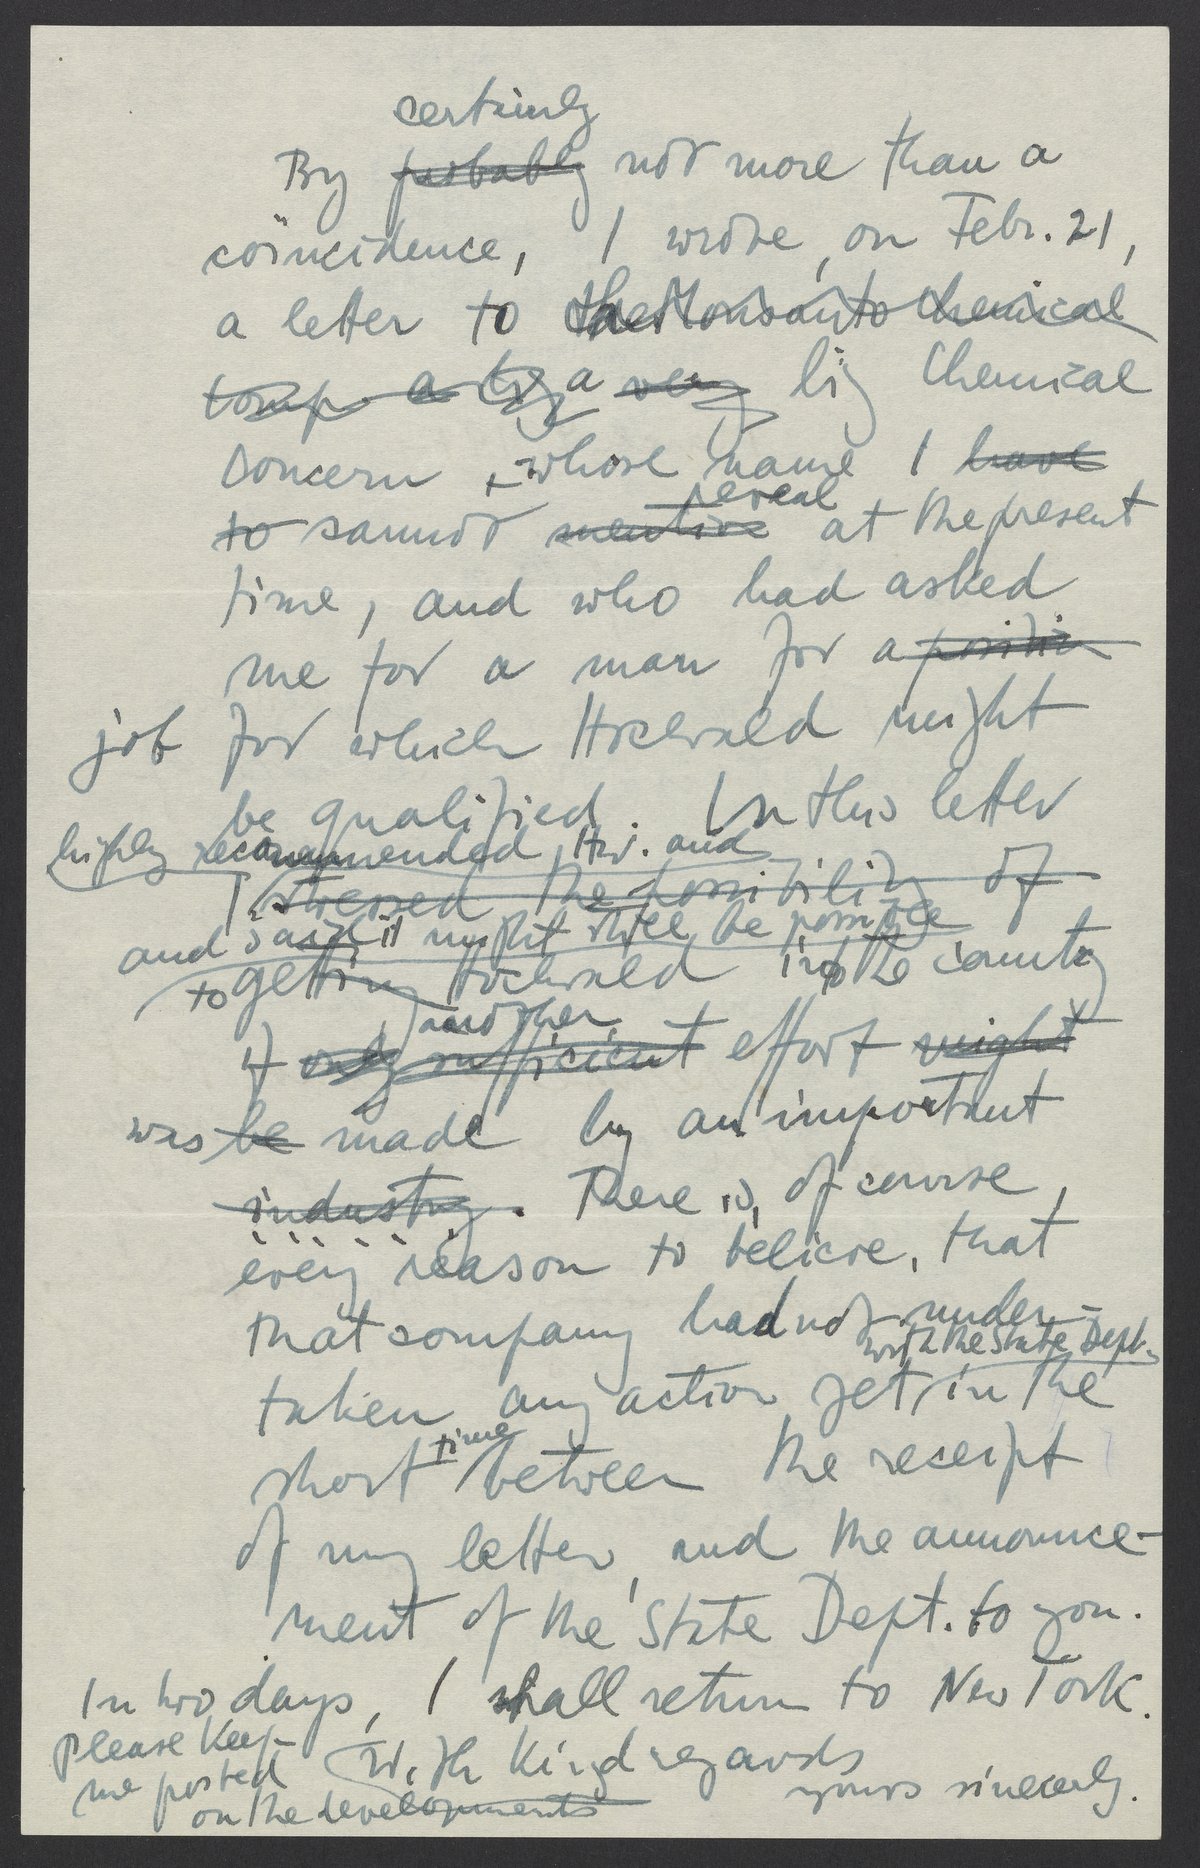 certainly
By probably not more than a
coïncidence, I wrote, on Febr. 21,
a letter to the Monsanto Chemical
Comp. a big a very big Chemical
Concern, whose name I have
reveal
to cannot mention at the present
time, and who had asked
me for a man for a position
job for which Hochwald might
be qualified. In this letter
highly recommended Hw. and
I stressed the possibility of
and said it might still be possible
to getting Hochwald into the country
another
if only sufficient effort might
was be made by an important
industry. There is, of course,
every reason to believe, that
that company had not under-
with the State Dept.
taken any action yet in the
time
short between the receipt
of my letter, and the announce-
ment of the State Dept. to you.
In two days, I shall return to New York.
please keep
me posted
on the developments
With kind regards
yours sincerely.